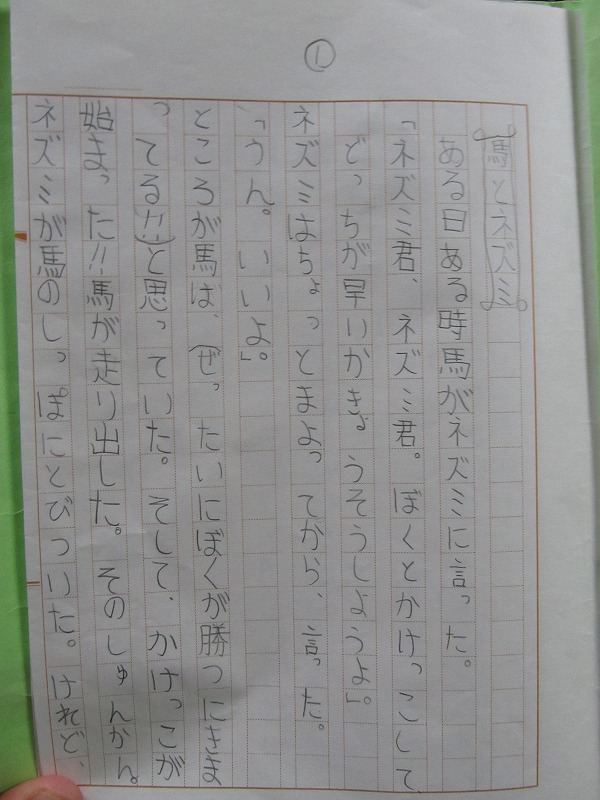 ①
「馬とネズミ」
ある日ある時馬がネズミに言った。
「ネズミ君、ネズミ君。ぼくとかけっこして、
どっちが早いかきょうそうしようよ」。
ネズミはちょっとまよってから、言った。
「うん。いいよ」。
ところが馬は、(ぜったいにぼくが勝つにきま
ってる!!)と思っていた。そして、かけっこが
始まった!!馬が走り出した。そのしゅんかん。
ネズミが馬のしっぽにとびついた。けれど、